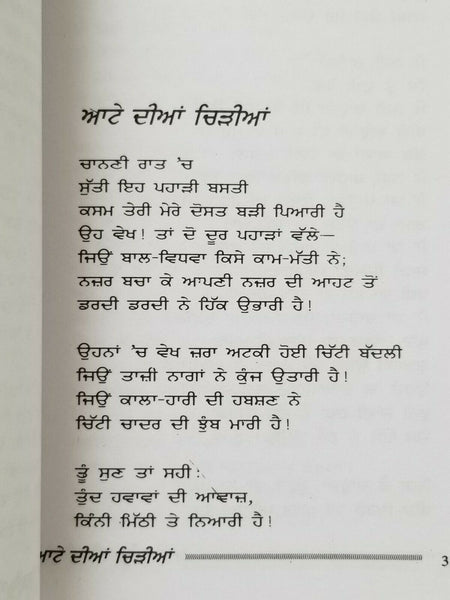 ਆਟੇ ਦੀਆਂ ਚਿੜੀਆਂ
ਚਾਨਣੀ ਰਾਤ 'ਚ
ਸੁੱਤੀ ਇਹ ਪਹਾੜੀ ਬਸਤੀ
ਕਸਮ ਤੇਰੀ ਮੇਰੇ ਦੋਸਤ ਬੜੀ ਪਿਆਰੀ ਹੈ
ਉਹ ਵੇਖ! ਤਾਂ ਦੋ ਦੂਰ ਪਹਾੜਾਂ ਵੱਲੇ—
ਜਿਉਂ ਬਾਲ-ਵਿਧਵਾ ਕਿਸੇ ਕਾਮ-ਮੱਤੀ ਨੇ;
ਨਜ਼ਰ ਬਚਾ ਕੇ ਆਪਣੀ ਨਜ਼ਰ ਦੀ ਆਹਟ ਤੋਂ
ਡਰਦੀ ਡਰਦੀ ਨੇ ਹਿੱਕ ਉਭਾਰੀ ਹੈ!
ਉਹਨਾਂ 'ਚ ਵੇਖ ਜ਼ਰਾ ਅਟਕੀ ਹੋਈ ਚਿੱਟੀ ਬੱਦਲੀ
ਜਿਉਂ ਤਾਜ਼ੀ ਨਾਗਾਂ ਨੇ ਕੁੰਜ ਉਤਾਰੀ ਹੈ!
ਜਿਉਂ ਕਾਲਾ-ਹਾਰੀ ਦੀ ਹਬਸ਼ਣ ਨੇ
ਚਿੱਟੀ ਚਾਦਰ ਦੀ ਝੁੰਬ ਮਾਰੀ ਹੈ!
ਤੂੰ ਸੁਣ ਤਾਂ ਸਹੀ:
ਤੁੰਦ ਹਵਾਵਾਂ ਦੀ ਆਵਾਜ਼,
ਕਿੰਨੀ ਮਿੱਠੀ ਤੇ ਨਿਆਰੀ ਹੈ!
ਆਟੇ ਦੀਆਂ ਚਿੜੀਆਂ 3